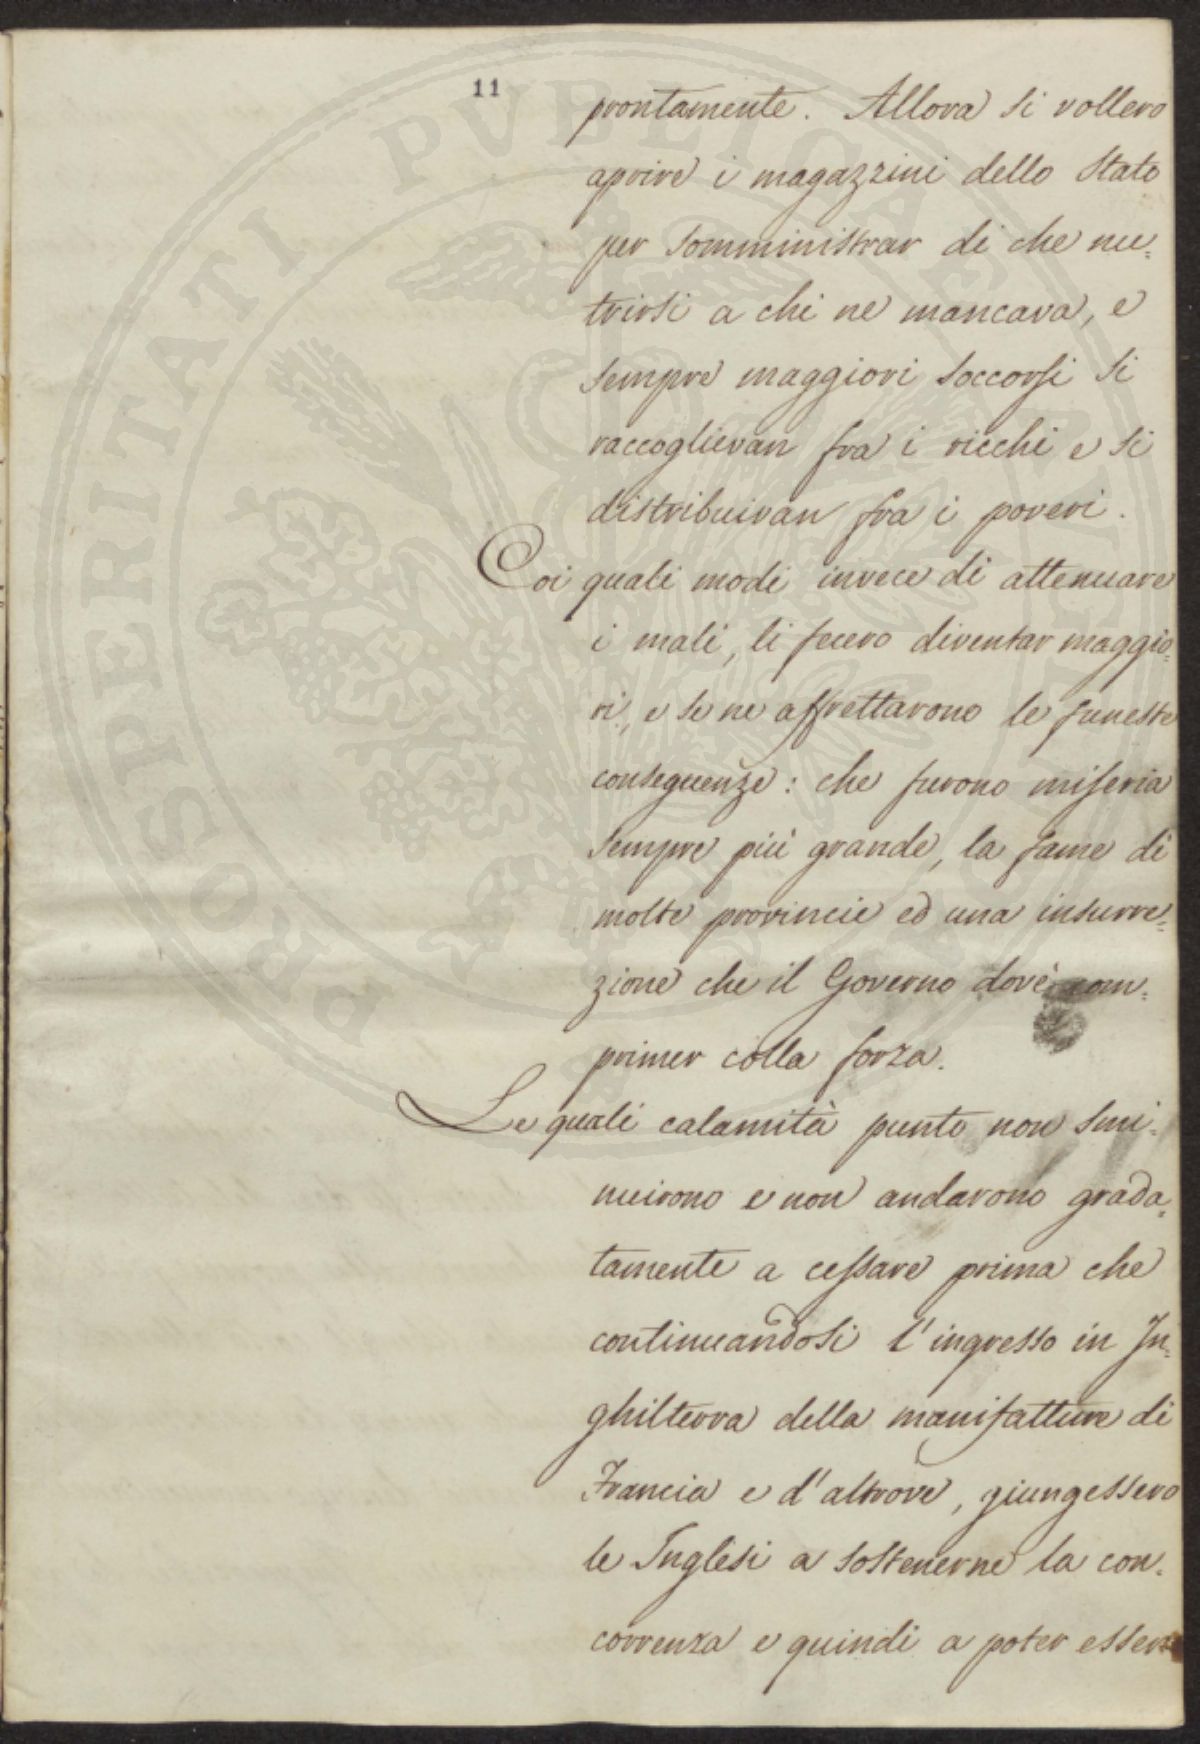 11
prontamente. Allora si vollero
aprire i magazzini dello Stato
per somministrar di che nu=
trirsi a chi ne mancava, e
sempre maggiori soccorsi si
raccoglievan fra i ricchi e si
distribuivan fra i poveri.
Coi quali modi invece di attenuare
i mali, li fecero diventar maggio=
ri, e se ne affrettarono le funeste
conseguenze: che furono miseria
sempre più grande, la fame di
molte provincie ed una insurre=
zione che il Governo dovè com=
primer colla forza.
Le quali calamità punto non smi=
nuirono e non andarono grada=
tamente a cessare prima che
continuandosi l'ingresso in In=
ghilterra della manifatture di
Francia e d'altrove, giungessero
le Inglesi a sostenerne la con=
correnza e quindi a poter essere
PROSPERITATI PVBLICAE AVGENDAE